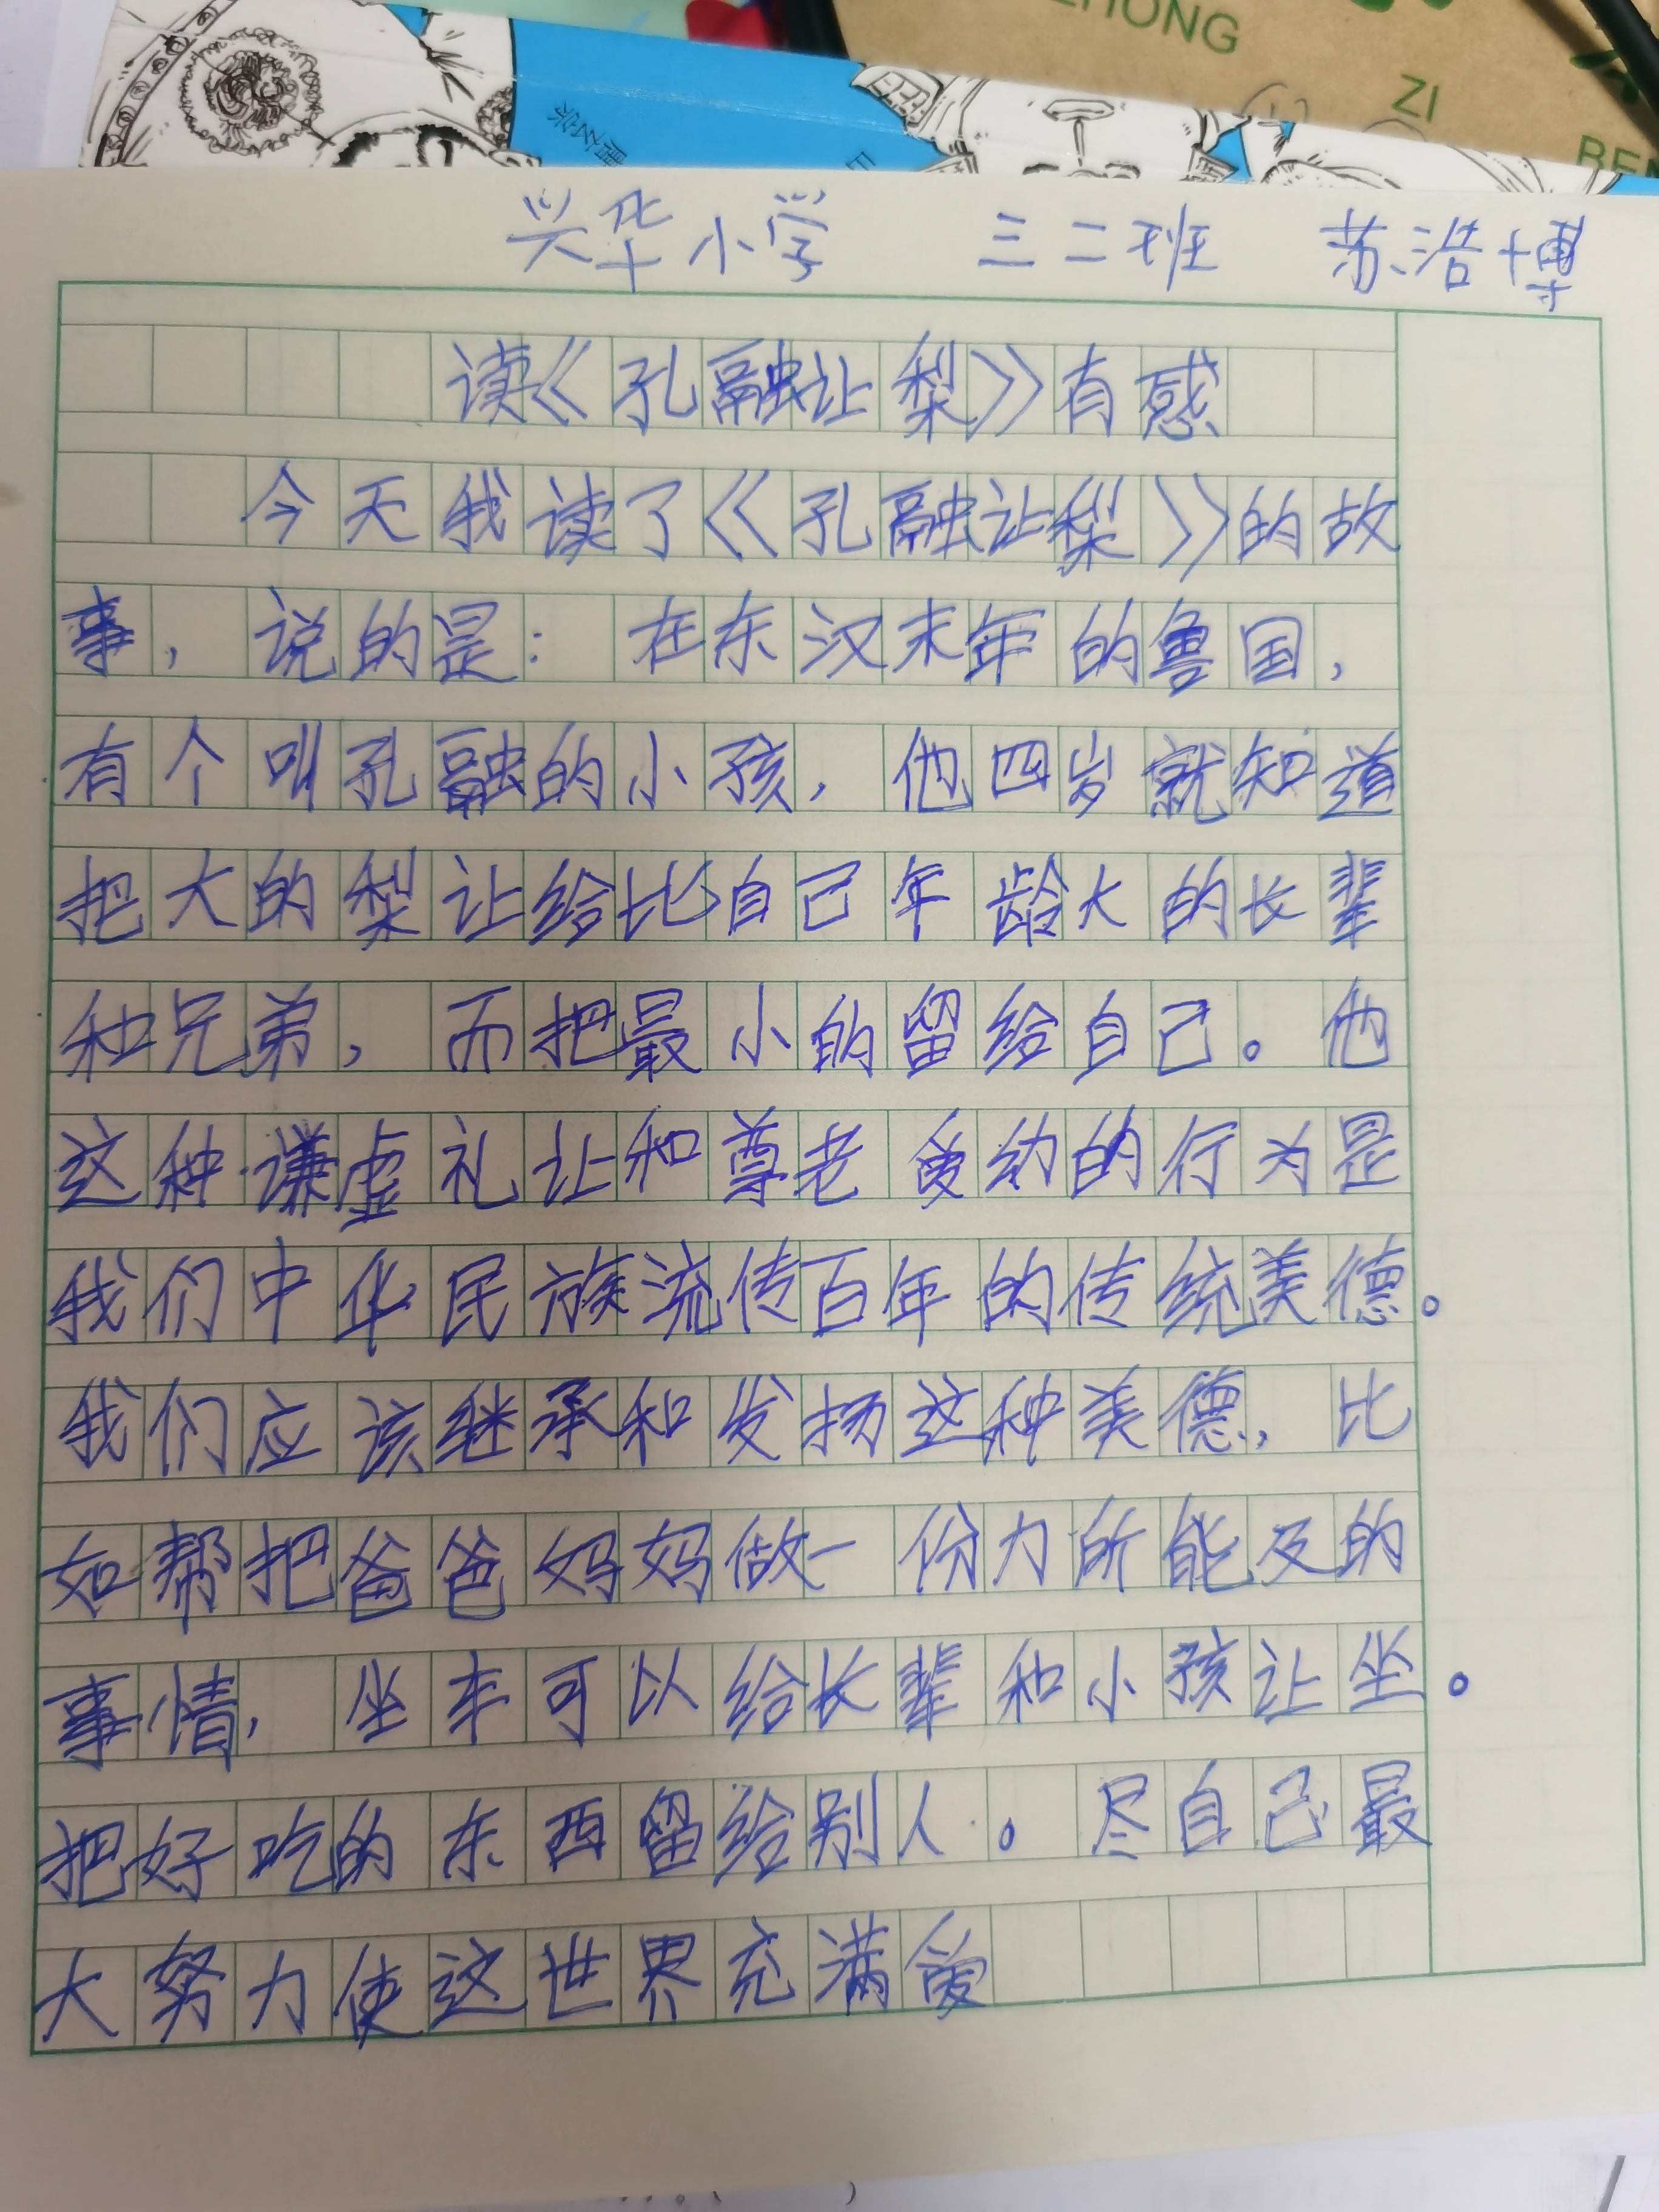 ZHONG
ZI
BEN
兴华小学 三二班 苏浩博
读《孔融让梨》有感
今天我读了《孔融让梨》的故
事，说的是：在东汉末年的鲁国，
有个叫孔融的小孩，他四岁就知道
把大的梨让给比自己年龄大的长辈
和兄弟，而把最小的留给自己。他
这种谦虚礼让和尊老爱幼的行为是
我们中华民族流传百年的传统美德。
我们应该继承和发扬这种美德，比
如帮把爸爸妈妈做一份力所能及的
事情，坐车可以给长辈和小孩让坐。
把好吃的东西留给别人。尽自己最
大努力使这世界充满爱